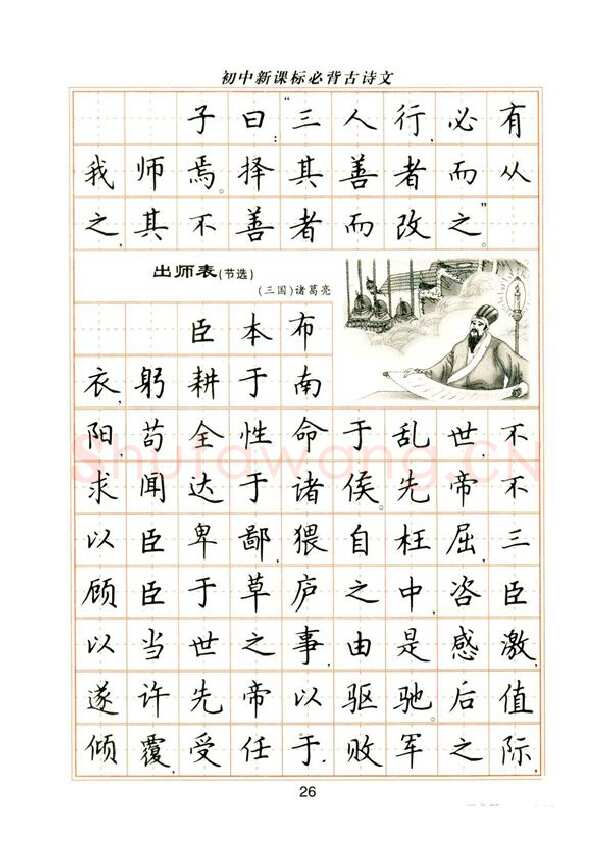 初中新课标必背古诗文
子曰:“三人行,必有
我师焉。择其善者而从
之,其不善者而改之。”
出师表(节选)
(三国)诸葛亮
臣本布
衣,躬耕于南
阳,苟全性命于乱世,不
求闻达于诸侯。先帝不
以臣卑鄙,猥自枉屈,三
顾臣于草庐之中,咨臣
以当世之事,由是感激,
遂许先帝以驱驰。后值
倾覆,受任于败军之际,
26
Shufawang.CN